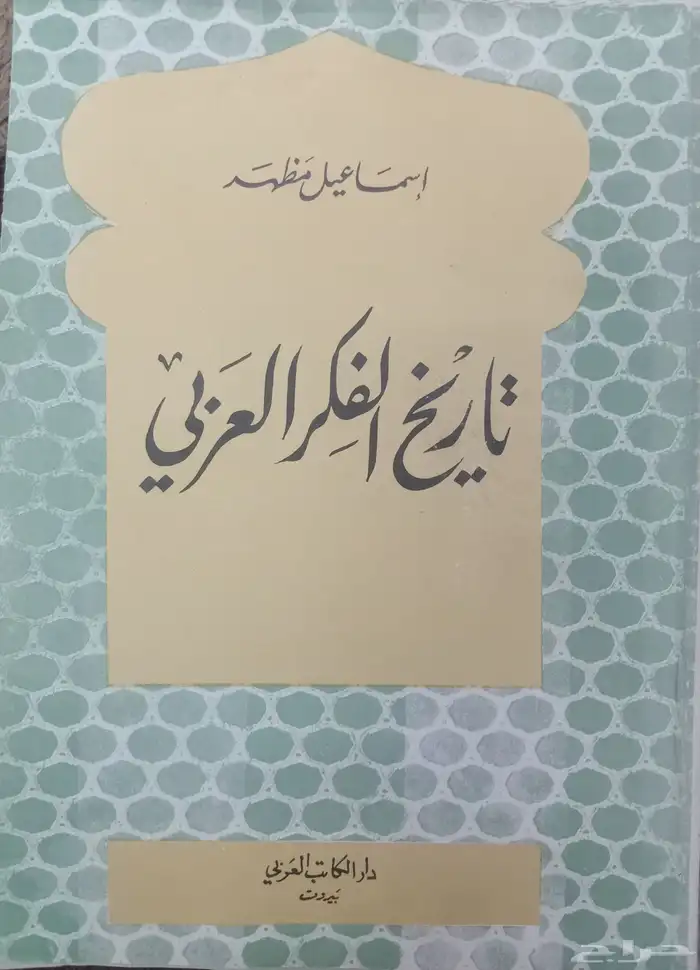 إسماعيل مظهر
تاريخ الفكر العربي
دار الكاتب العربي
بيروت
حراج